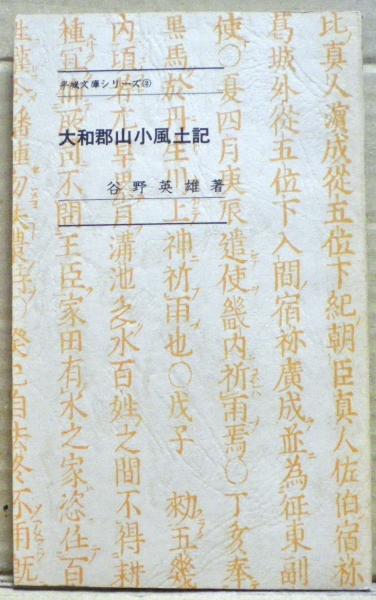 平城文庫シリーズ②
大和郡山小風土記
谷野英雄著
比真人濵成從五位下紀朝臣真人佐伯宿祢
葛城外從五位下入間宿祢廣成並為征東副
使〇夏四月庚辰遣使畿内祈雨焉〇丁亥奉
黒馬於丹生川上神祈雨也〇戊子 勅五幾
内頃者亢旱 溝池乏水百姓之間不得耕
種宜 不問王臣家田有水之家恣任百
癸巳自去冬不雨既